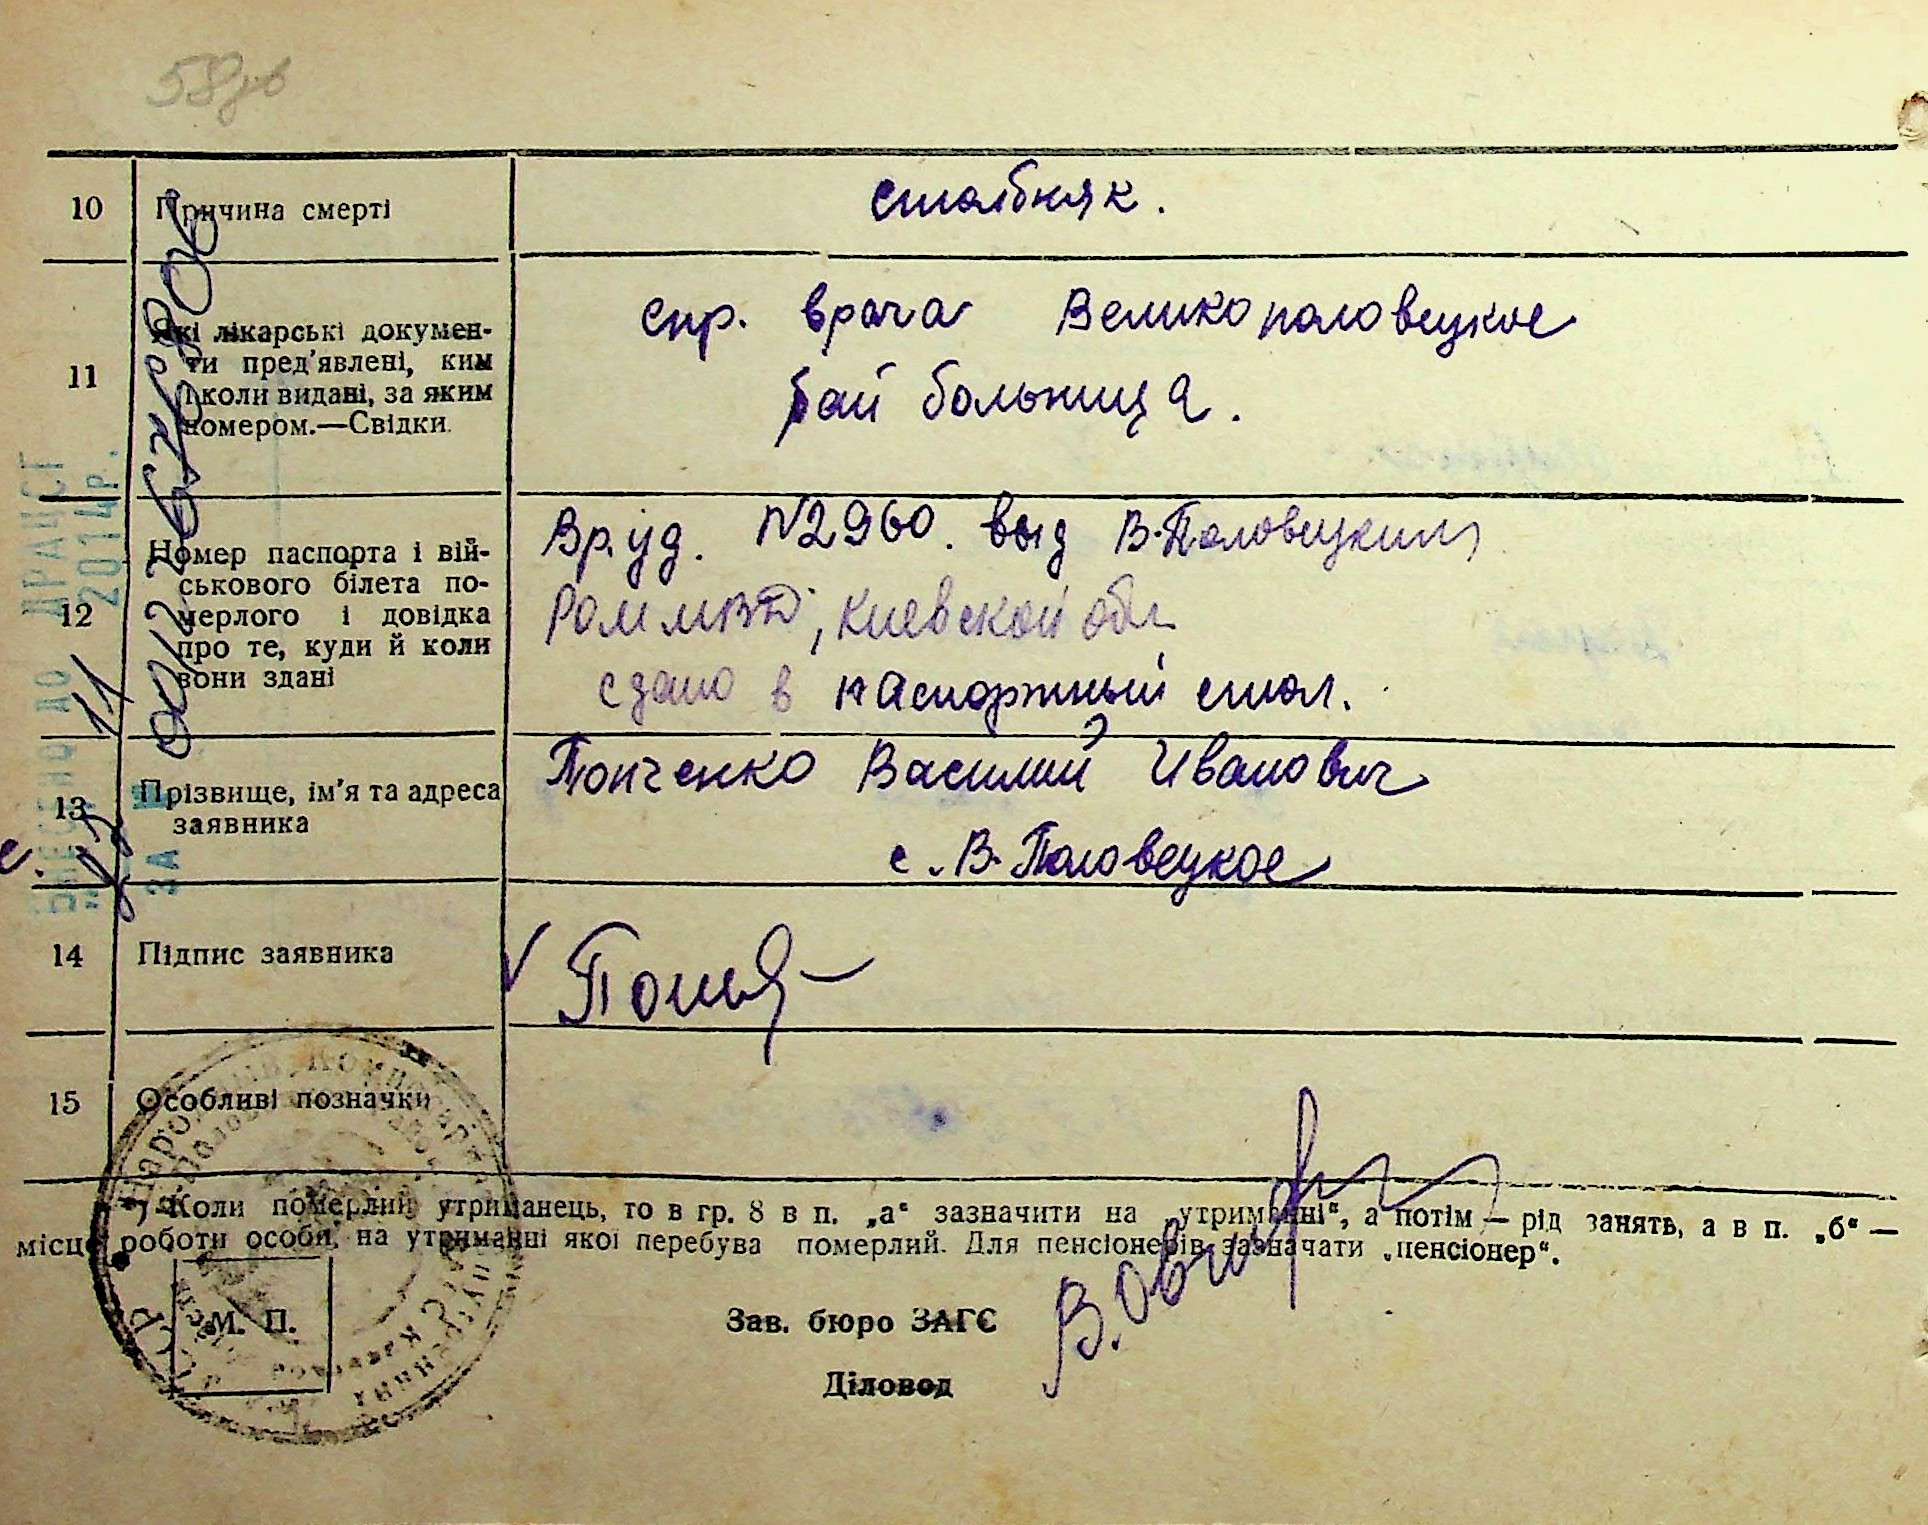 58
10 Причина смерті столбняк.
11 Які лікарські докумен-
ти пред'явлені, ким
і коли видані, за яким
номером.—Свідки.
спр. врача Великополовецкое
рай больница.
12 Номер паспорта і вій-
ськового білета по-
мерлого і довідка
про те, куди й коли
вони здані
Вр. уд. N2960. выд В-Половецким
РОМ МВД, Киевской обл
сдано в паспортный стол.
13 Прізвище, ім'я та адреса
заявника
Василий Иванович
с. В-Половецкое
14 Підпис заявника
15 Особливі позначки
*) Коли померлий утриманець, то в гр. 8 в п. „а“ зазначити на утриманні“, а потім — рід занять, а в п. „б“ —
місце роботи особи, на утриманні якої перебува померлий. Для пенсіонерів зазначати „пенсіонер“.
М. П.
Зав. бюро ЗАГС
Діловод
ВНЕСЕНО ДО ДРАЦСГ
11 2014р.
ЗА №